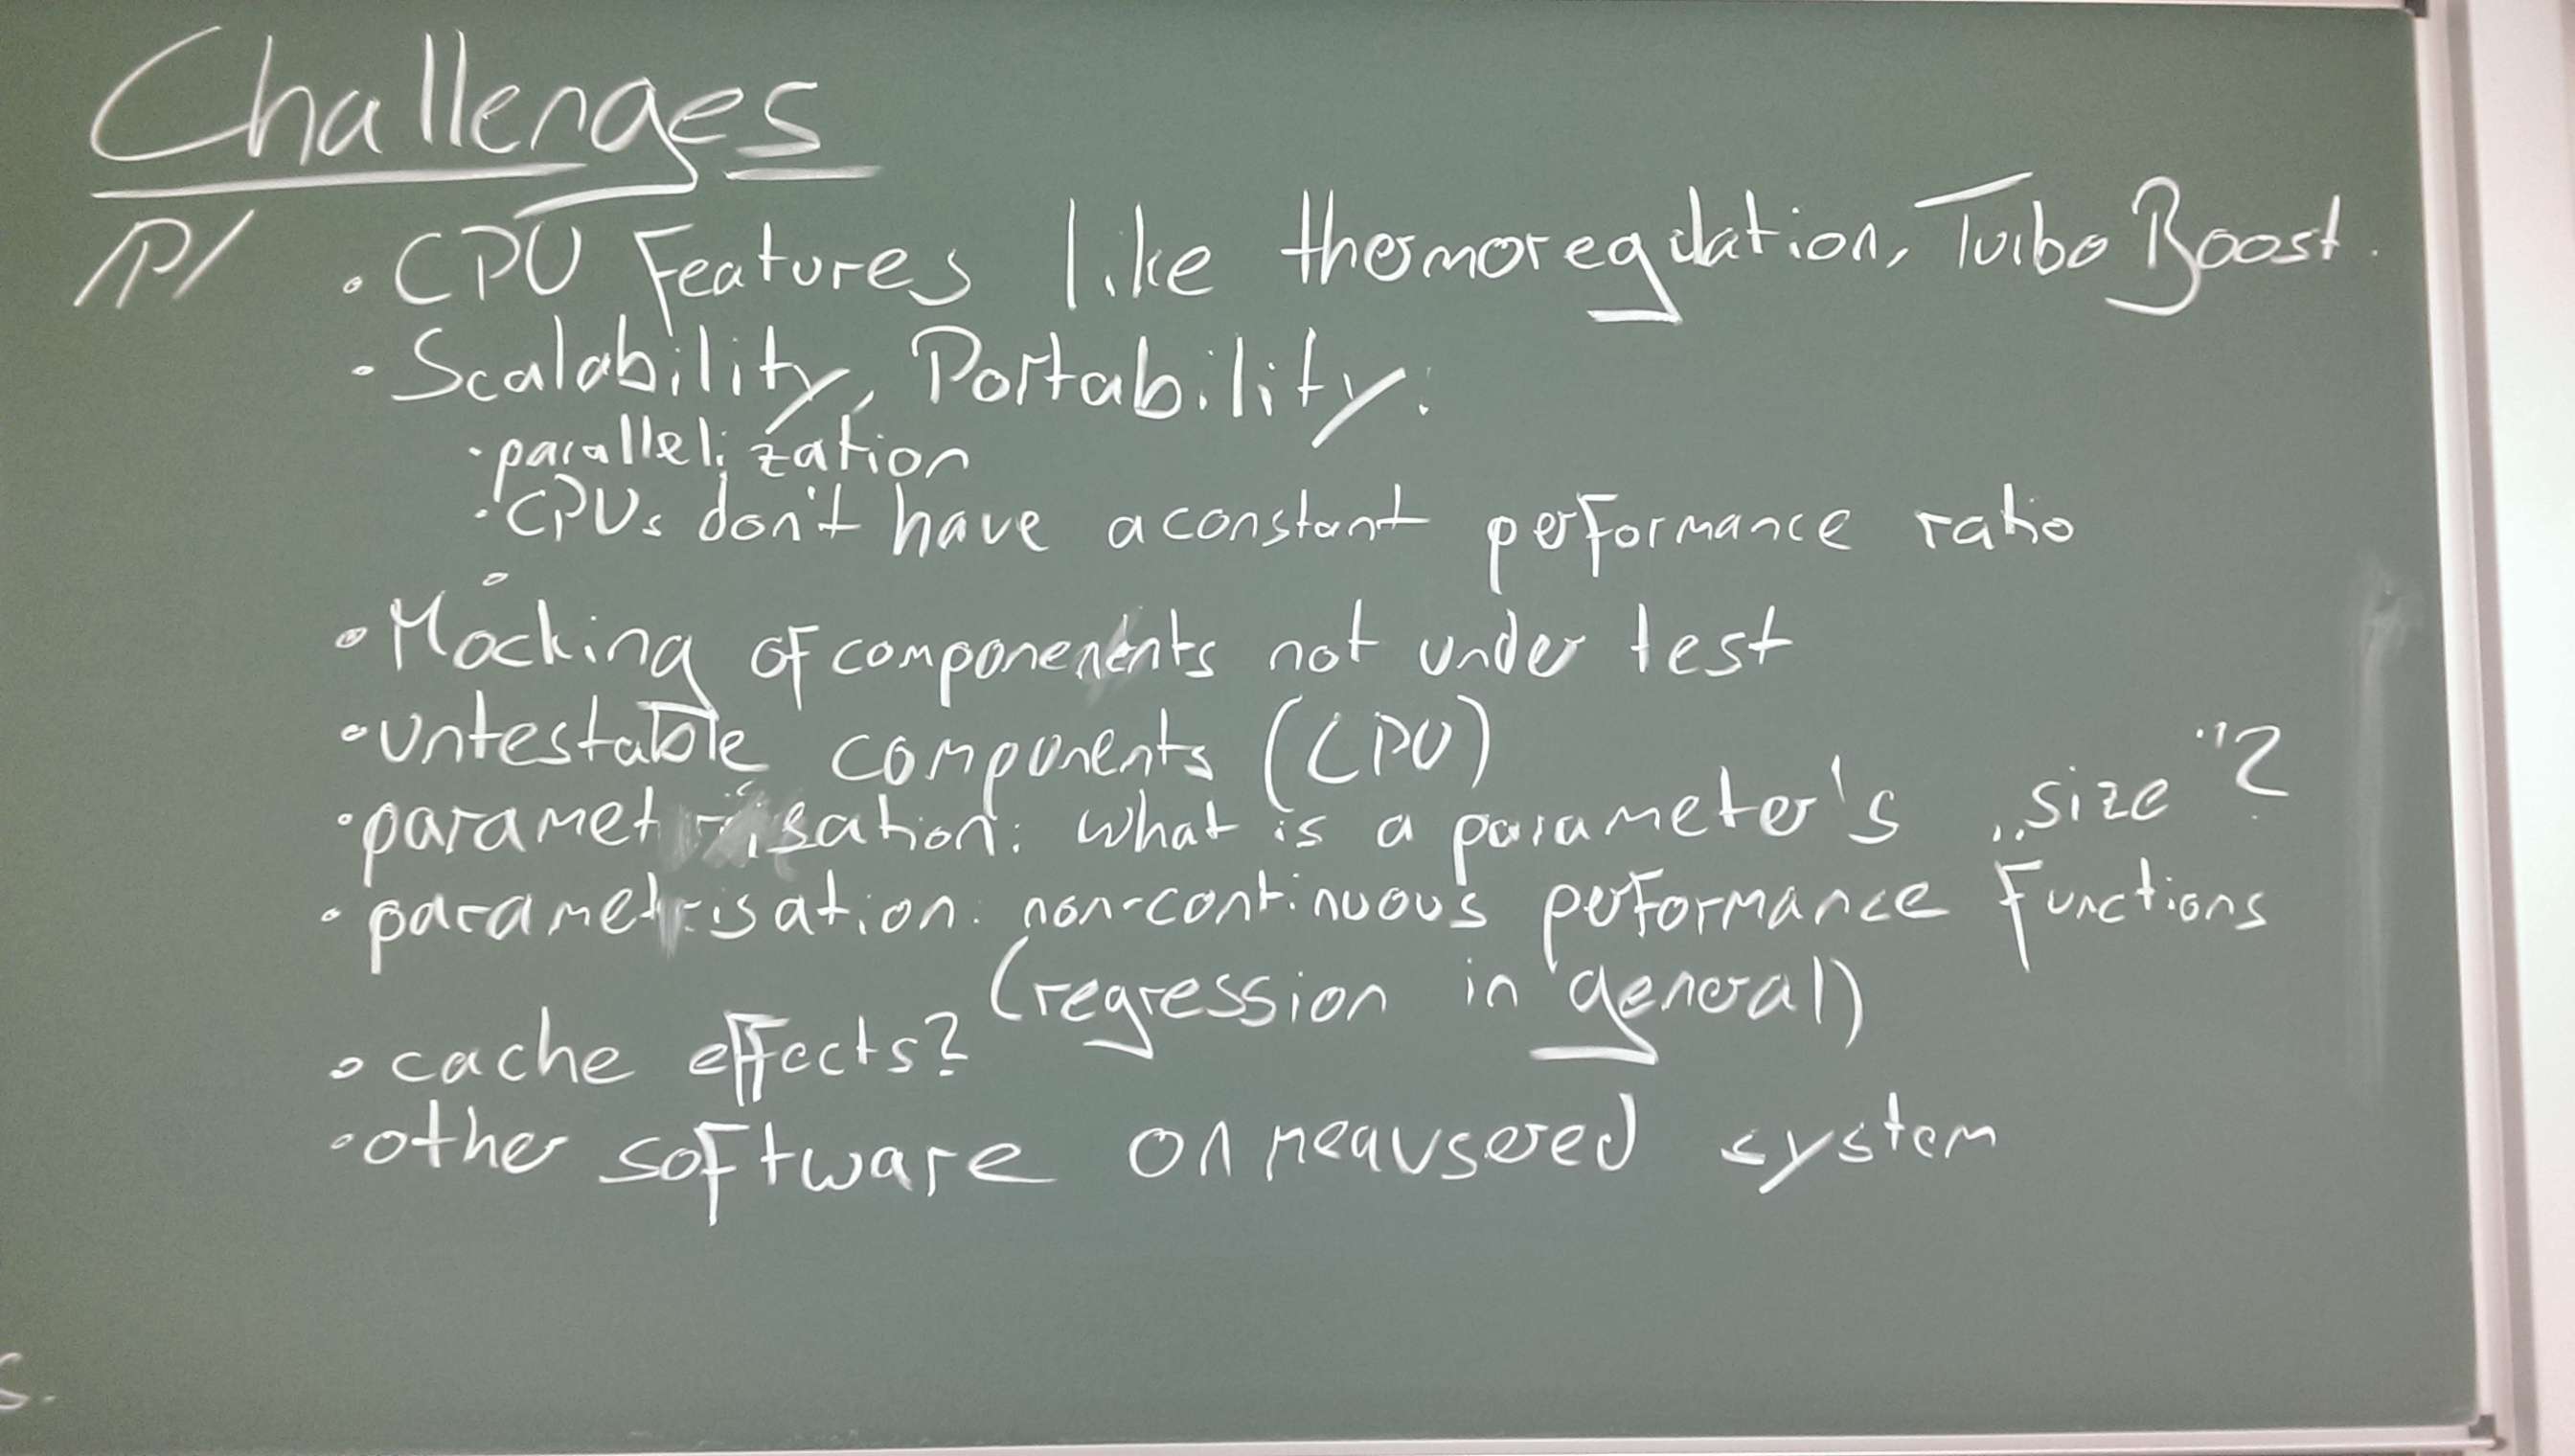 Challenges
/P/ • CPU Features like thermoregulation, Turbo Boost.
• Scalability, Portability:
• parallelization
• CPUs don't have a constant performance ratio
• Mocking of components not under test
• untestable components (CPU)
• parametrisation: what is a parameter's „size"?
• parametrisation: non-continuous performance functions
(regression in general)
• cache effects?
• other software on meausered system
s.